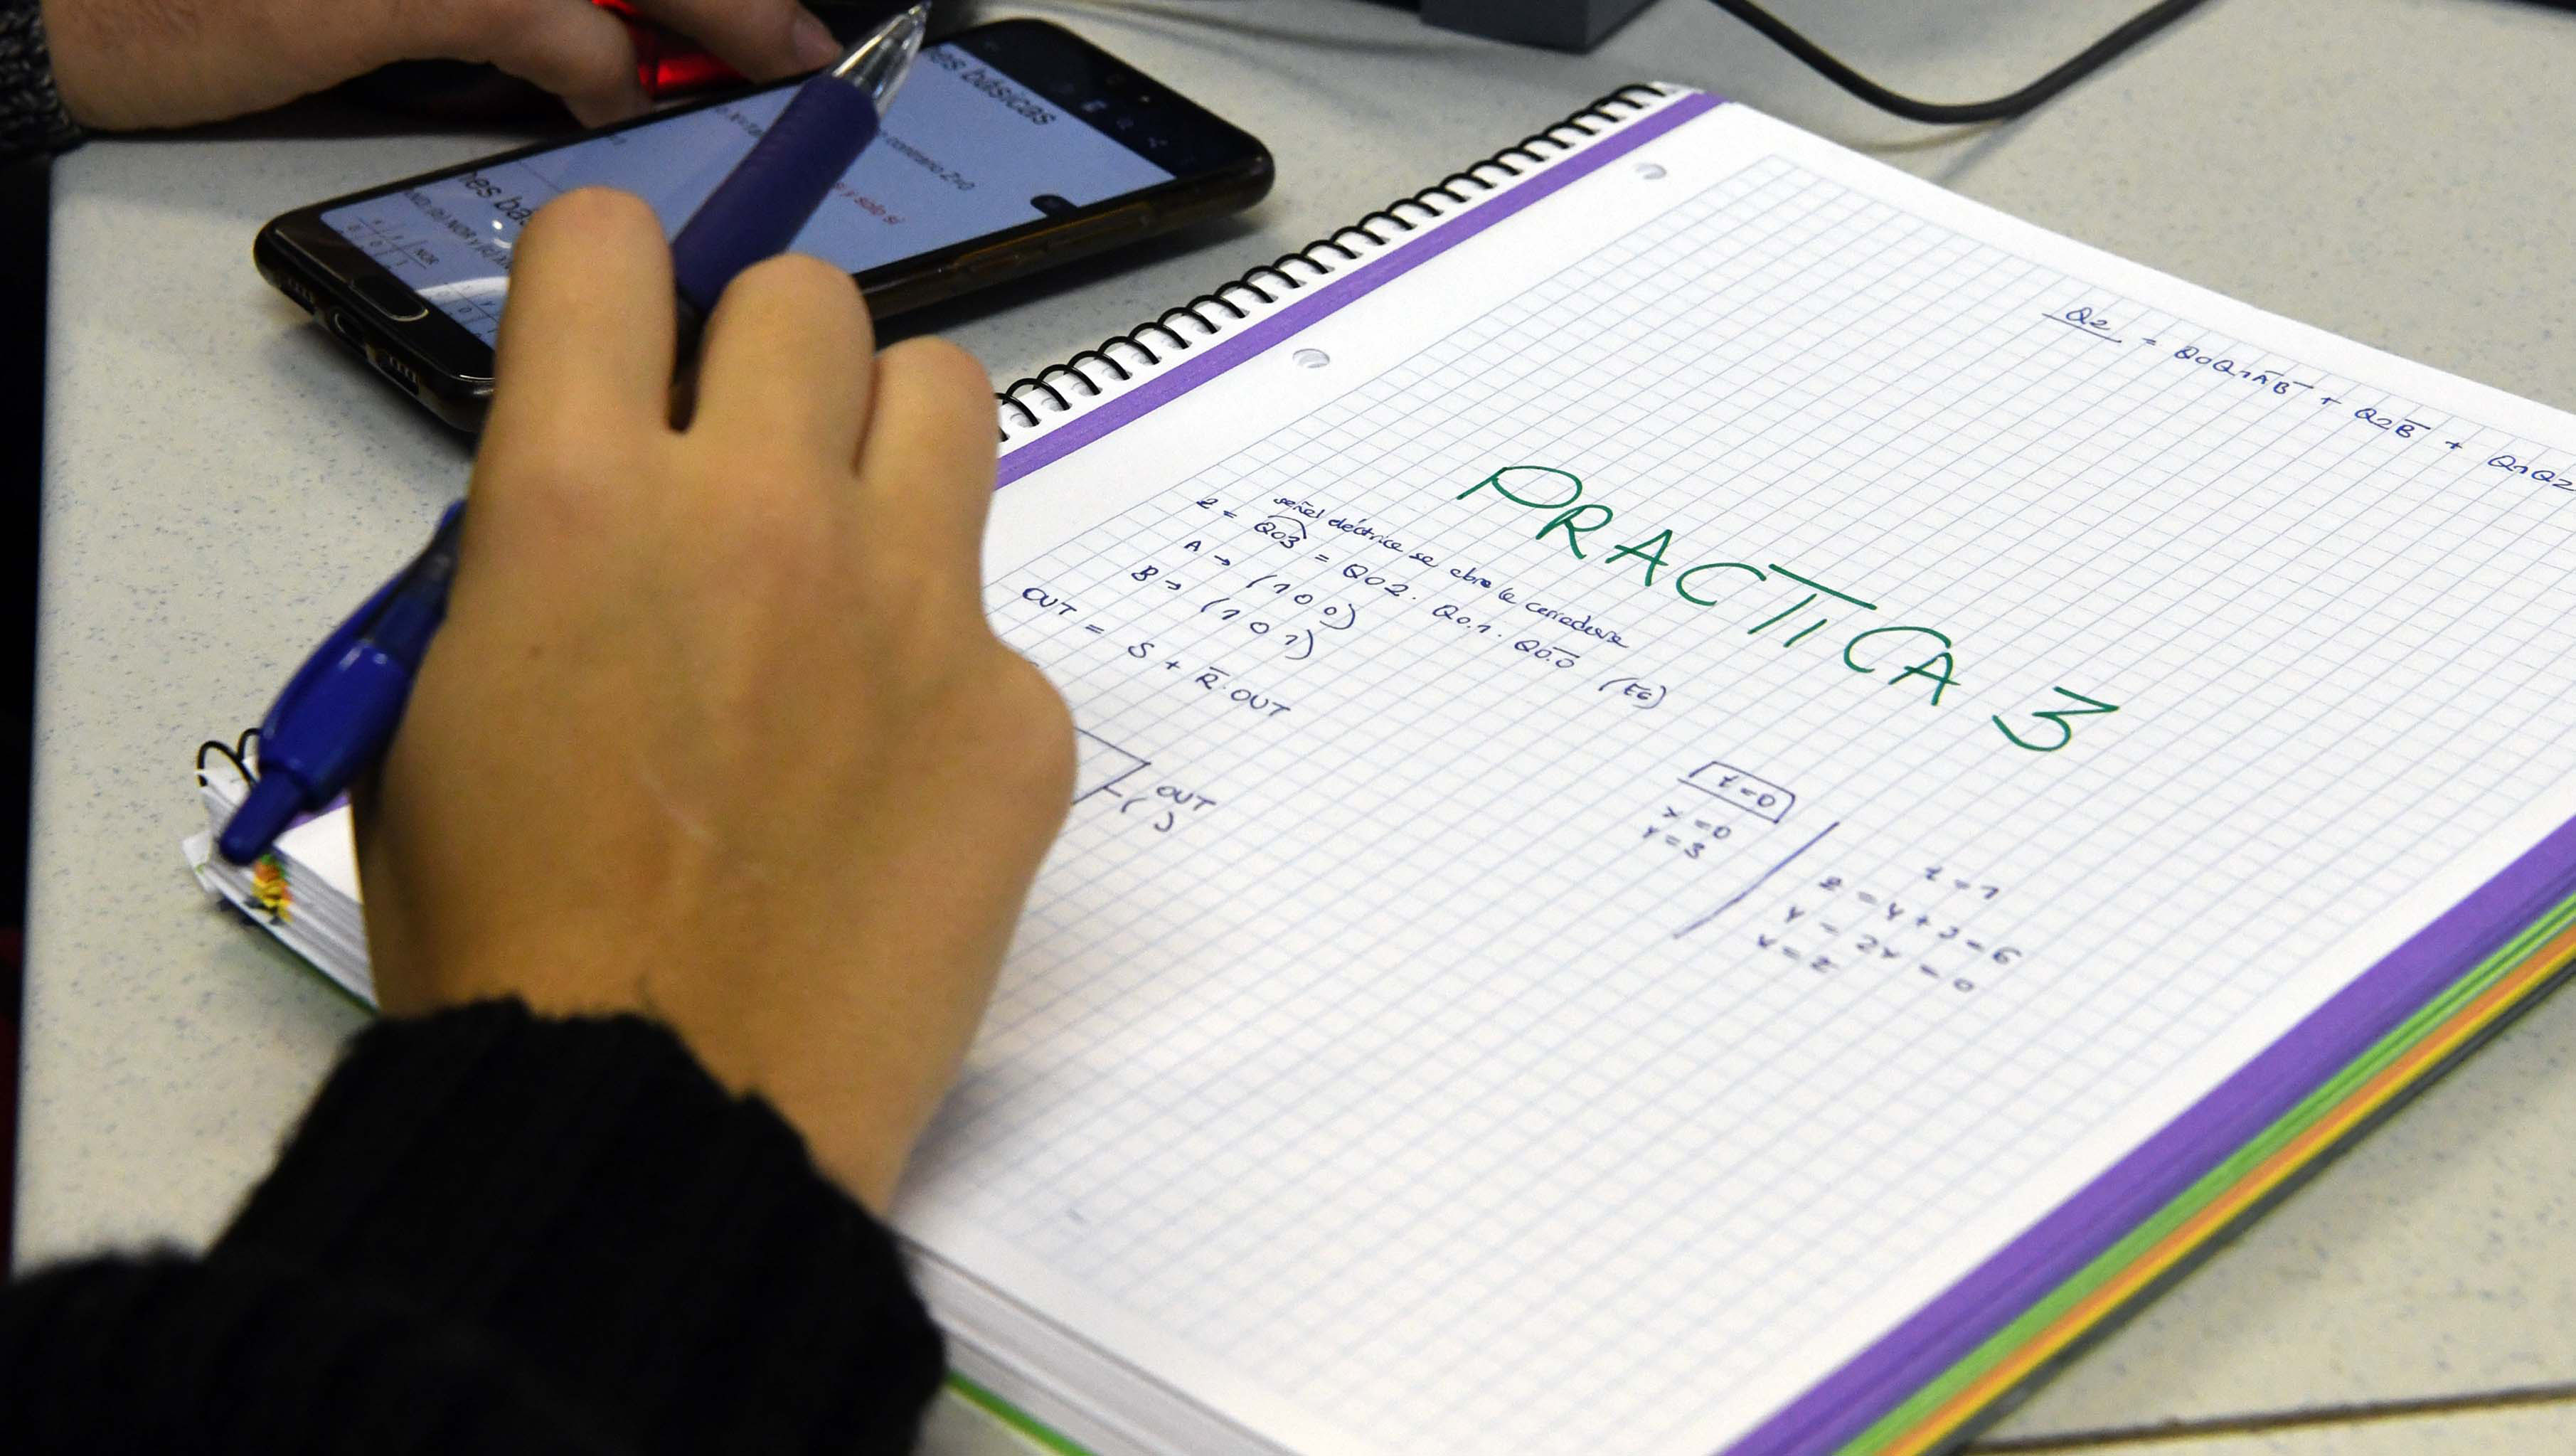 es básicas
contrario Z=0
y solo si
nes bá
NOR
Q2 = Q0Q1ĀB̄ + Q2B̄ + Q1Q2
PRACTICA 3
señal eléctrica se abre la cerradura
Z = Q03 = Q02 · Q0.1 · Q̅0̅.̅0̅ (E6)
A → (100)
B → (101)
OUT = S + R̄·OUT
OUT
( )
t=0
x=0
Y=3
t=1
Z=Y+3=6
Y=2x=0
x=2